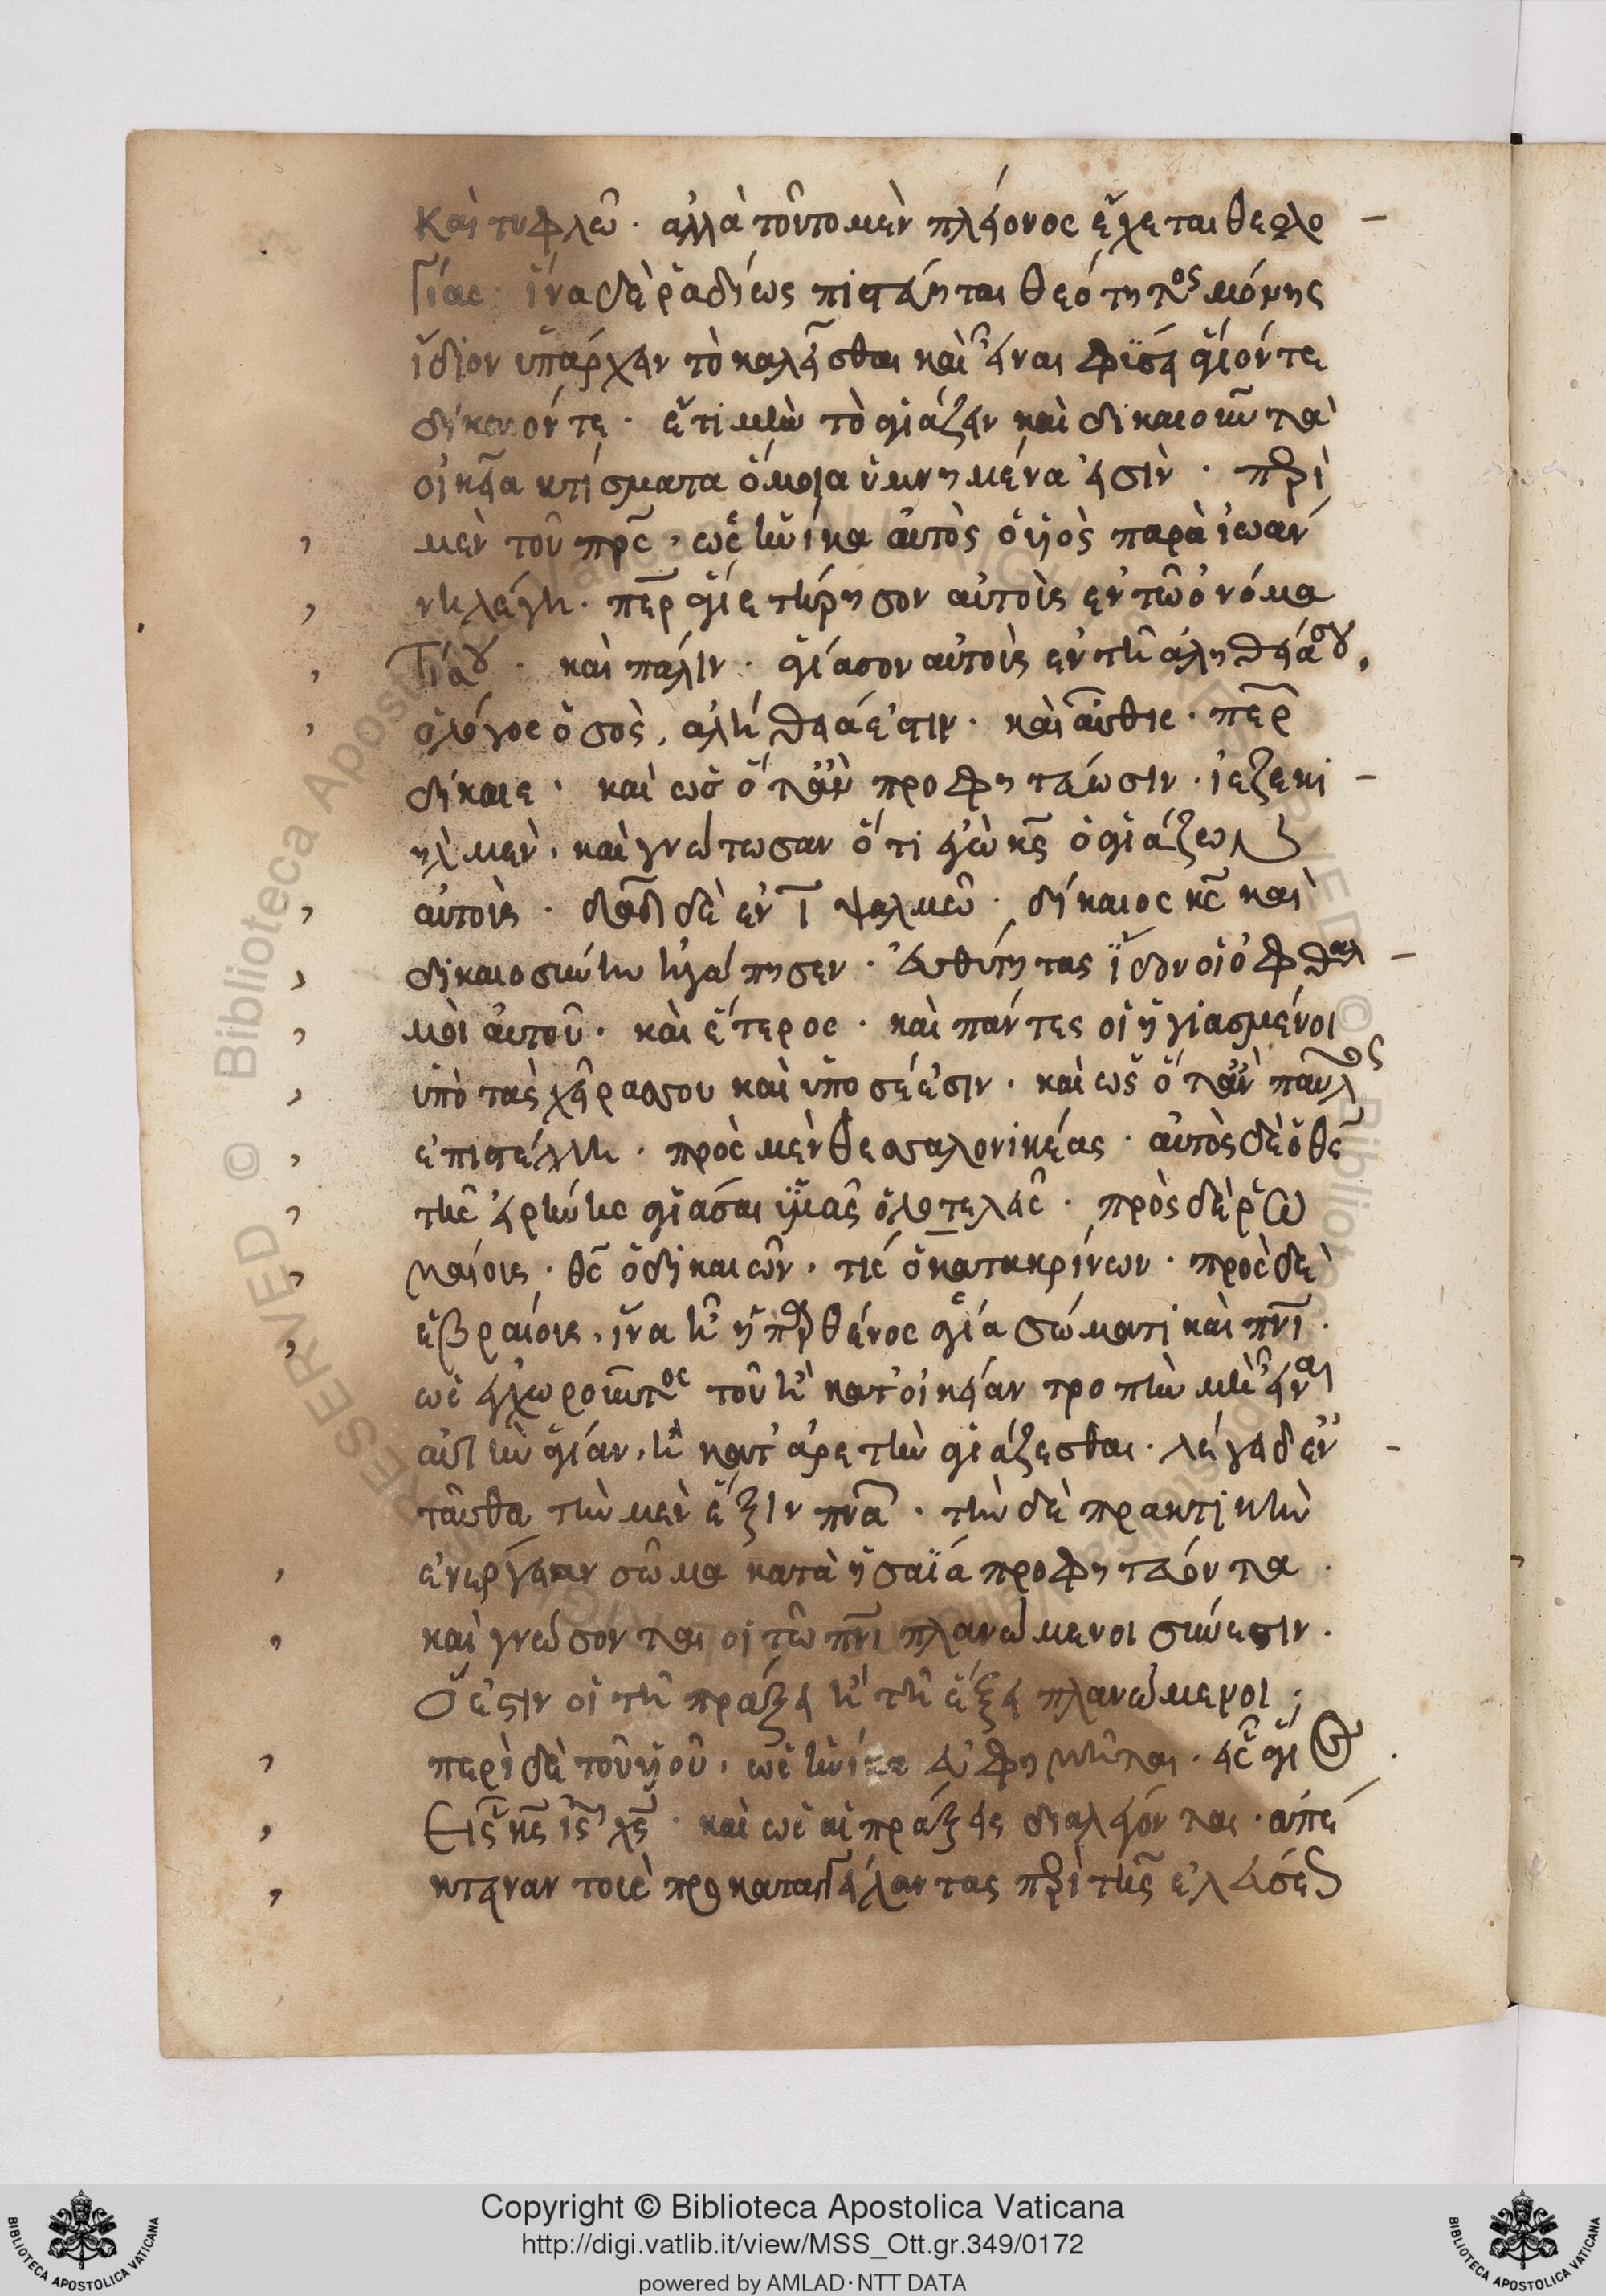 καὶ τυφλῶ· ἀλλὰ τοῦτο μὲν πλείονος ἔχεται θεολο
γίας· ἵνα δὲ ῥαδίως πιστεύηται θεότητος μόνης
ἴδιον ὑπάρχειν τὸ καλεῖσθαι καὶ εἶναι φύσει ἅγιόν τε
δίκαιόν τε· ἔτι μὴν τὸ ἁγιάζειν καὶ δικαιοῦντα
οἰκεῖα κτίσματα ὅμοια ὑμνημένα εἰσὶν· περὶ
μὲν τοῦ πρς, ὡς ἡνίκα αὐτὸς ὁ υἱὸς παρὰ ἰωάν
νη λέγη· περ ἅγιε τήρησον αὐτοὺς ἐν τῶ ὀνόμα
τί σου· καὶ πάλιν· ἁγίασον αὐτοὺς ἐν τῆ ἀληθεία σου,
ὁ λόγος ὁ σὸς, ἀλήθειά ἐστιν· καὶ αὖθις· περ
δίκαιε· καὶ ὡς ὅταν προφητεύωσιν· ἰεζεκι
ὴλ μὲν, καὶ γνώτωσαν ὅτι ἐγὼ κς ὁ ἁγιάζων
αὐτούς· δαδ δὲ ἐν ι ψαλμῶ· δίκαιος κς καὶ
δικαιοσύνην ἠγάπησεν· εὐθύτητας ἴδον οἱ ὀφθαλ
μοὶ αὐτοῦ· καὶ ἕτερος· καὶ πάντες οἱ ἡγιασμένοι
ὑπὸ τὰς χεῖρας σου καὶ ὑπο σέ εἰσιν· καὶ ὡς ὅταν παῦλος
ἐπιστέλλη· πρὸς μὲν θεσσαλονικέας· αὐτὸς δὲ ὁ θς
τῆς εἰρήνης ἁγιάσαι ὑμᾶς ὁλοτελεῖς· πρὸς δὲ ῥω
μαίους· θς ὁ δικαιῶν· τίς ὁ κατακρίνων· πρὸς δὲ
ἑβραίους, ἵνα ἦ ἡ παρθένος ἁγία σώματι καὶ πνι·
ὡς ἐγχωροῦντος τοῦ ἢ κατ' οἰκείαν τροπὴν μὴ εἶναι
αὐτὴν ἁγίαν, ἢ κατ' ἀρετὴν ἁγιάζεσθαι· λέγει δ ἐν
ταῦθα τὴν μὲν ἕξιν πνα· τὴν δὲ πρακτικὴν
ἐνέργειαν σῶμα κατὰ ἡσαΐα προφητεύοντα·
καὶ γνώσονται οἱ τῶ πνι πλανώμενοι σύνεσιν·
ὅ ἐστιν οἱ τῆ πράξει ἢ τῆ ἕξει πλανώμενοι·
περὶ δὲ τοῦ υἱοῦ, ὡς ἡνίκα εὐφημῆται· εἷς ἅγιος
εἷς κς ις χς· καὶ ὡς αἱ πράξεις διαλέγονται· ἀπέ
κτειναν τοὺς προκαταγγείλαντας περὶ τῆς ἐλεύσεως